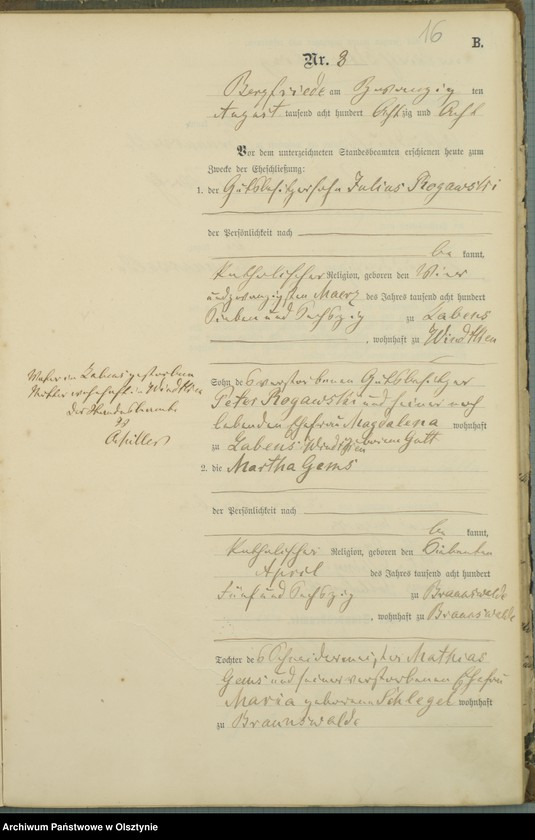 16
B.
Nr. 8
Bergfriede am Zwanzig ten
August tausend acht hundert Achtzig und Acht
Vor dem unterzeichneten Standesbeamten erschienen heute zum
Zwecke der Eheschließung:
1. der Gutsbesitzersohn Julius Rogawski
der Persönlichkeit nach
be kannt,
katholischer Religion, geboren den Vier
undzwanzigsten Maerz des Jahres tausend acht hundert
Sieben und Sechszig zu Labens
, wohnhaft zu Windtken
Vater in Labens gestorben
Mutter wohnhaft in Windtken
Der Standesbeamte
Schüller
Sohn des verstorbenen Gutsbesitzer
Peter Rogawski und seiner noch
lebenden Ehefrau Magdalena wohnhaft
zu Labens Windtken geborene Gatt
2. die Martha Gems
der Persönlichkeit nach
be kannt,
katholischer Religion, geboren den Siebenten
April des Jahres tausend acht hundert
Fünf und Sechszig zu Braunswalde
, wohnhaft zu Braunswalde
Tochter des Schneidermeister Mathias
Gems und seiner verstorbenen Ehefrau
Maria geborenen Schlegel wohnhaft
zu Braunswalde
Archiwum Państwowe w Olsztynie